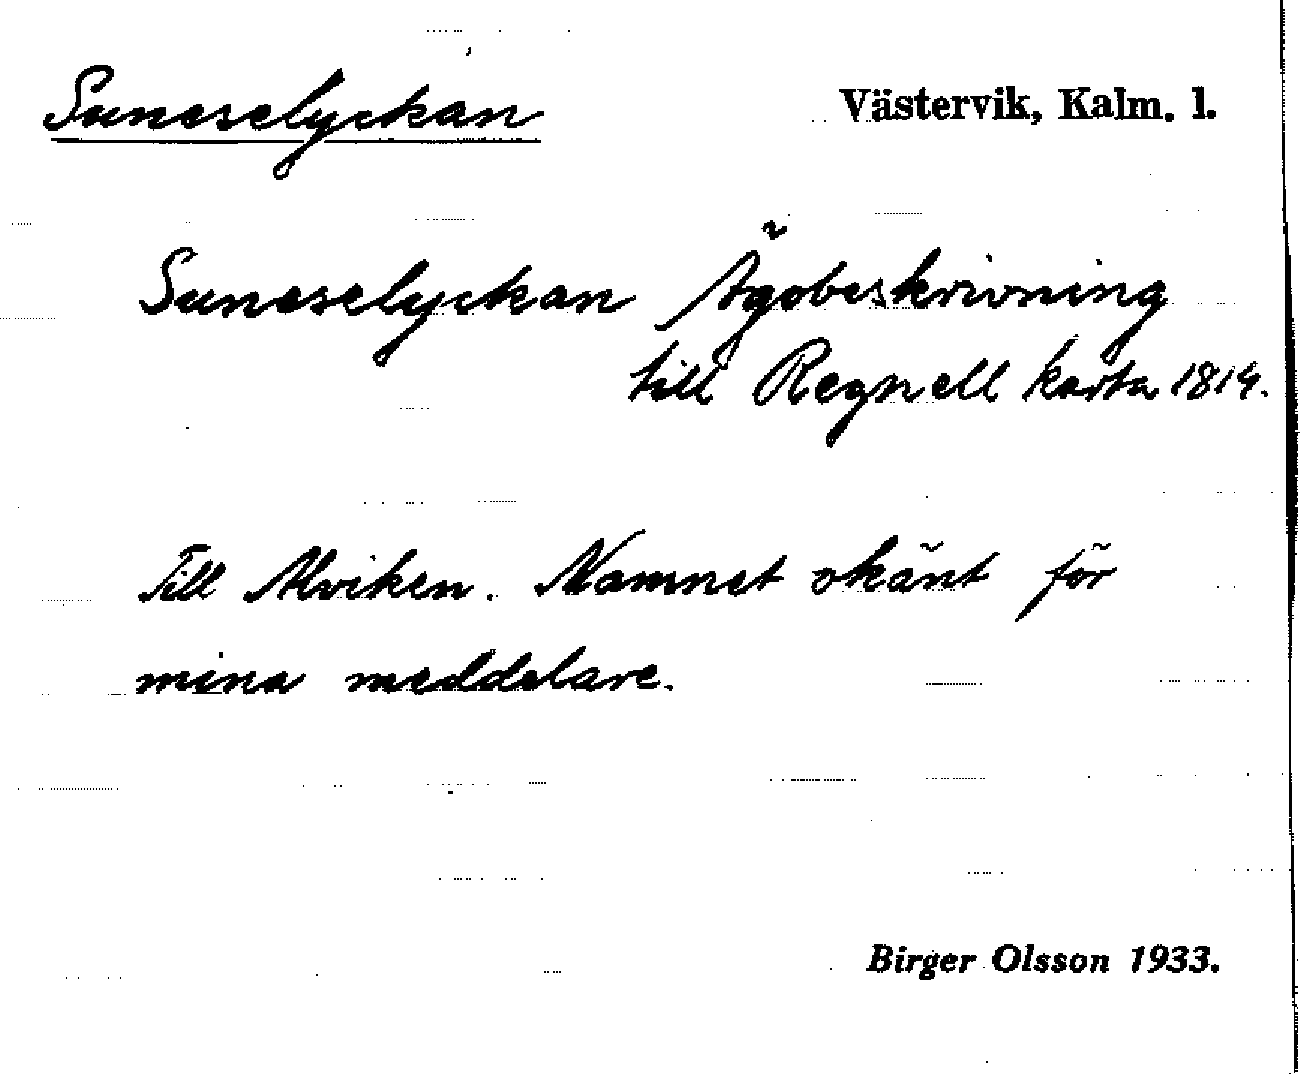 Suneselyckan
Västervik, Kalm. l.
Suneselyckan Ägobeskrivning
till Regnell karta 1814.
Till Alviken. Namnet okänt för
mina meddelare.
Birger Olsson 1933.